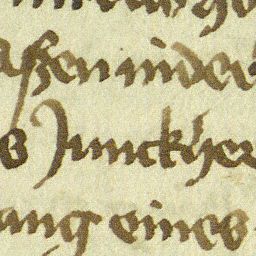 aßen in der
s Junckher
ang eines